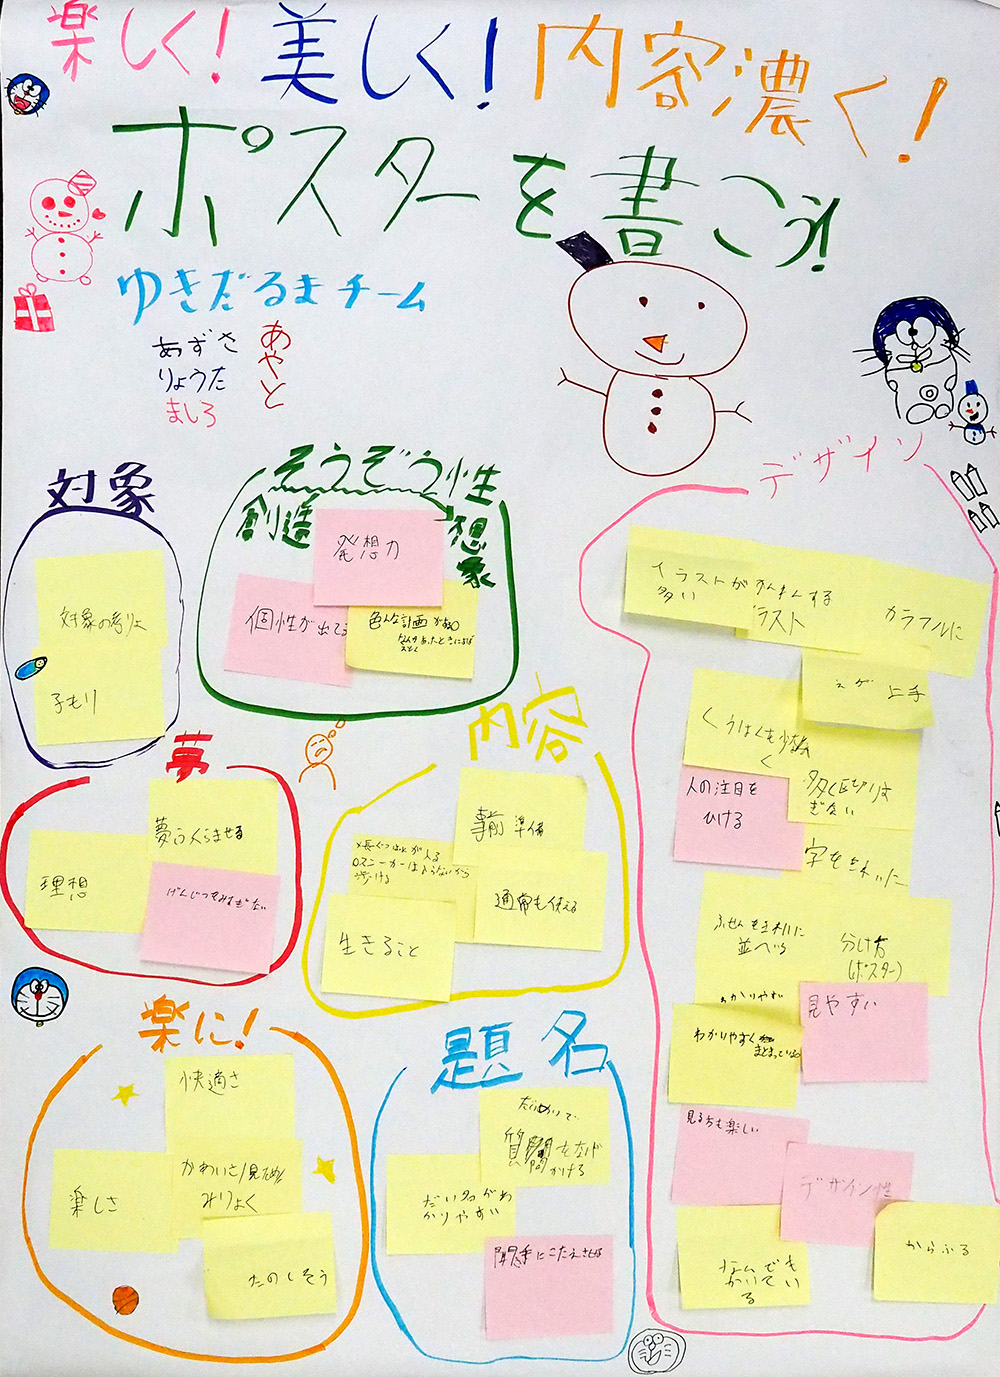 楽しく!美しく!内容濃く!
ポスターを書こう!
ゆきだるまチーム
あずさ
りょうた
ましろ
あやと
対象
対象の考りょ
子もり
そうぞう性
創造
想象
発想力
個性が出てる
色んな計画
デザイン
イラストが
多い
かんけんする
イラスト
カラフルに
上手
くうはくも少なく
人の注目を
ひける
多く
字を
ふせんをきれいに
並べる
分け方
(ポスター)
わかりやすい
わかりやすく
まとまっている
見やすい
見る方も楽しい
デザイン性
なんでも
かいてい
る
からふる
夢
夢ふくらませる
理想
内容
事前準備
スニーカーは
歩ける
通常も使える
生きること
楽に!
快適さ
楽しさ
かわいさ/見ため/
みりょく
たのしそう
題名
だいめいで
質問をなげ
かける
だい名がわ
かりやすい
聞き手にこたえさせる